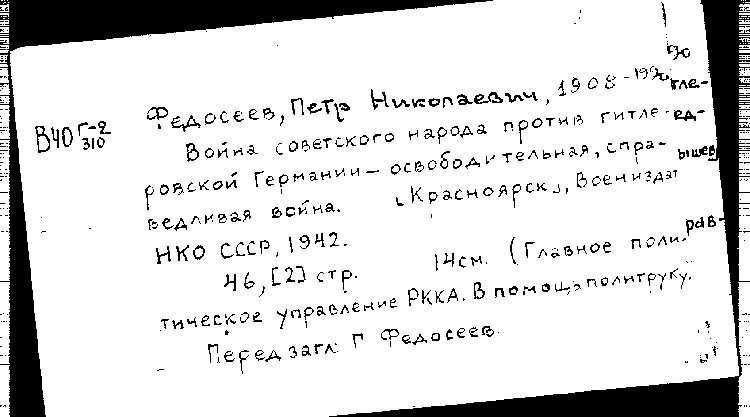 В40 Г-2
310
Федосеев, Петр Николаевич, 1908-1990
Война советского народа против гитле-
ровской Германии – освободительная, спра-
ведливая война. [Красноярск], Воениздат
НКО СССР, 1942.
46, [2] стр. 14 см. (Главное поли-
тическое управление РККА. В помощь политруку.
Перед загл: Г Федосеев.
90
гле-
ед-
ышев
рав-